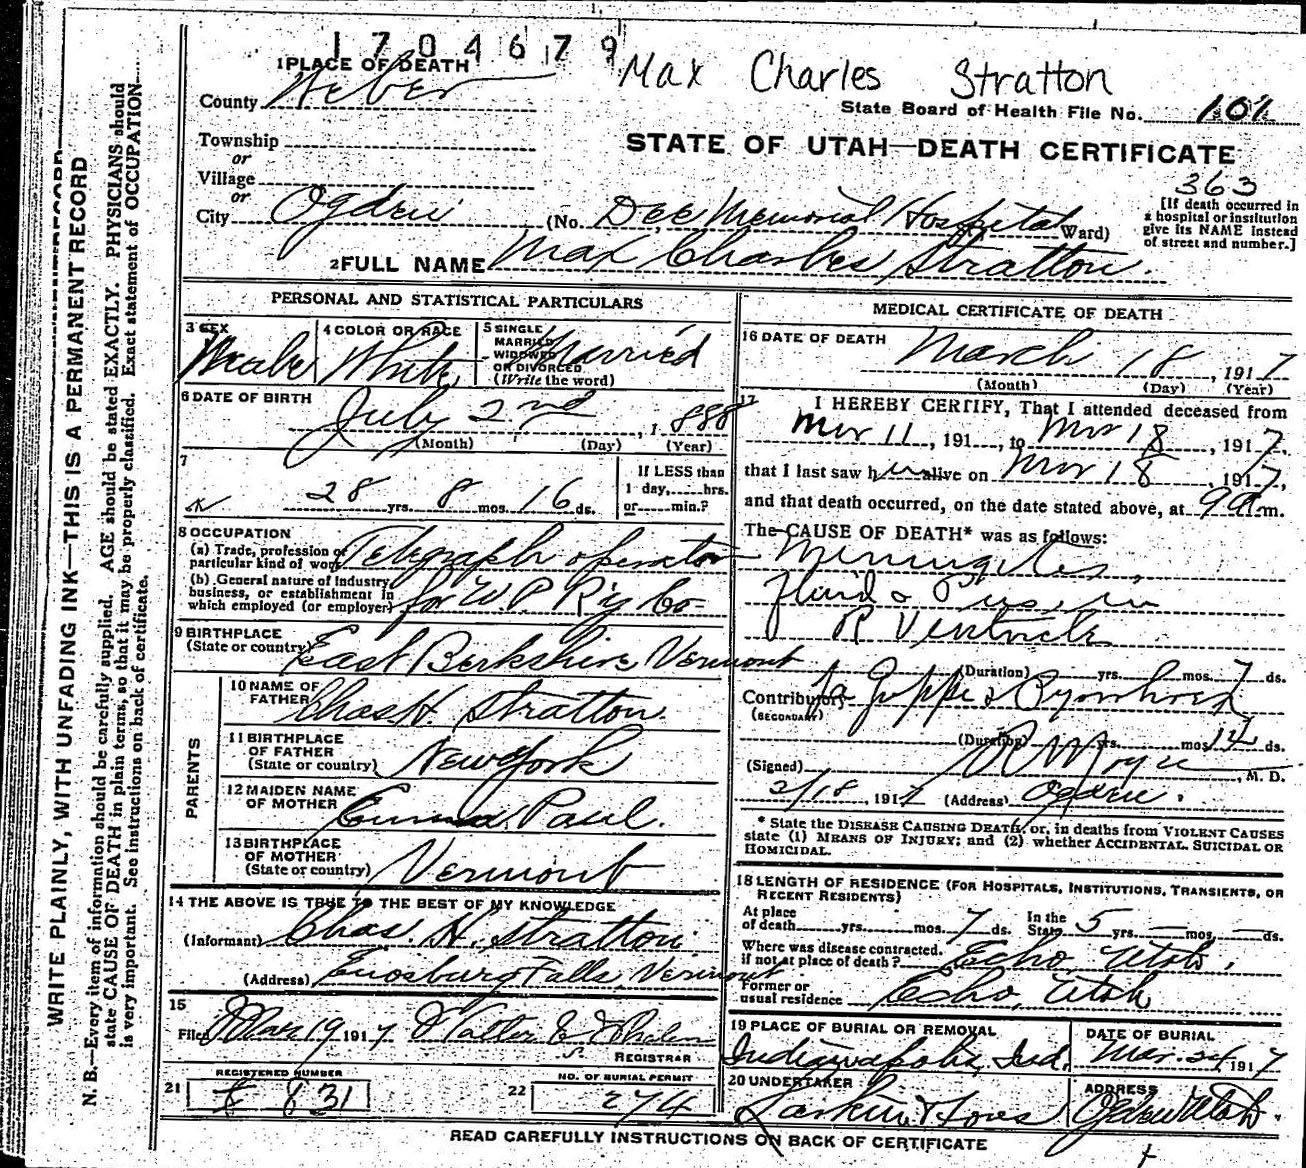 1704679
Max Charles Stratton
1 PLACE OF DEATH
County Weber
State Board of Health File No. 101
Township
or
Village
or
STATE OF UTAH—DEATH CERTIFICATE
363
City Ogden (No. Dee Memorial Hospital Ward)
[If death occurred in
a hospital or institution
give its NAME instead
of street and number.]
2 FULL NAME Max Charles Stratton.
PERSONAL AND STATISTICAL PARTICULARS
3 SEX
4 COLOR OR RACE White
5 SINGLE
MARRIED
WIDOWED
OR DIVORCED
(Write the word)
Married
6 DATE OF BIRTH
July 2nd, 1888
(Month) (Day) (Year)
7
28 yrs. 8 mos. 16 ds.
If LESS than
1 day,......hrs.
or......min.?
8 OCCUPATION
(a) Trade, profession or
particular kind of work
Telegraph operator
(b) General nature of industry
business, or establishment in
which employed (or employer)
for W.P. Ry Co
9 BIRTHPLACE
(State or country)
East Berkshire Vermont
PARENTS
10 NAME OF
FATHER
Chas H. Stratton.
11 BIRTHPLACE
OF FATHER
(State or country)
New York
12 MAIDEN NAME
OF MOTHER
Emma Paul.
13 BIRTHPLACE
OF MOTHER
(State or country)
Vermont
14 THE ABOVE IS TRUE TO THE BEST OF MY KNOWLEDGE
(Informant) Chas. H. Stratton
(Address) Enosburg Falls, Vermont
15
Filed Mar 19 1917 Walter E Whalen
REGISTRAR
21 REGISTERED NUMBER
831
22 NO. OF BURIAL PERMIT
274
MEDICAL CERTIFICATE OF DEATH
16 DATE OF DEATH
March 18, 1917
(Month) (Day) (Year)
17 I HEREBY CERTIFY, That I attended deceased from
Mar 11, 191...., to Mar 18, 1917,
that I last saw him alive on Mar 18, 1917,
and that death occurred, on the date stated above, at 9 a.m.
The CAUSE OF DEATH* was as follows:
Meningites,
Fluid & Pus in
R Ventricle
(Duration) yrs. mos. 7 ds.
Contributory
(SECONDARY)
(Duration) yrs. mos. 12 ds.
(Signed) M. D.
3/18, 1917 (Address) Ogden.
* State the DISEASE CAUSING DEATH, or, in deaths from VIOLENT CAUSES
state (1) MEANS OF INJURY; and (2) whether ACCIDENTAL, SUICIDAL OR
HOMICIDAL.
18 LENGTH OF RESIDENCE (FOR HOSPITALS, INSTITUTIONS, TRANSIENTS, OR
RECENT RESIDENTS)
At place
of death......yrs......mos. 7 ds.
In the
State 5 yrs. — mos. — ds.
Where was disease contracted,
if not at place of death?
Echo, Utah.
Former or
usual residence
Echo, Utah
19 PLACE OF BURIAL OR REMOVAL
Indianapolis, Ind.
DATE OF BURIAL
Mar. 24, 1917
20 UNDERTAKER
Larkin & Sons
ADDRESS
Ogden Utah.
READ CAREFULLY INSTRUCTIONS ON BACK OF CERTIFICATE
WRITE PLAINLY, WITH UNFADING INK—THIS IS A PERMANENT RECORD
N. B.—Every item of information should be carefully supplied. AGE should be stated EXACTLY. PHYSICIANS should
state CAUSE OF DEATH in plain terms, so that it may be properly classified. Exact statement of OCCUPATION
is very important. See instructions on back of certificate.